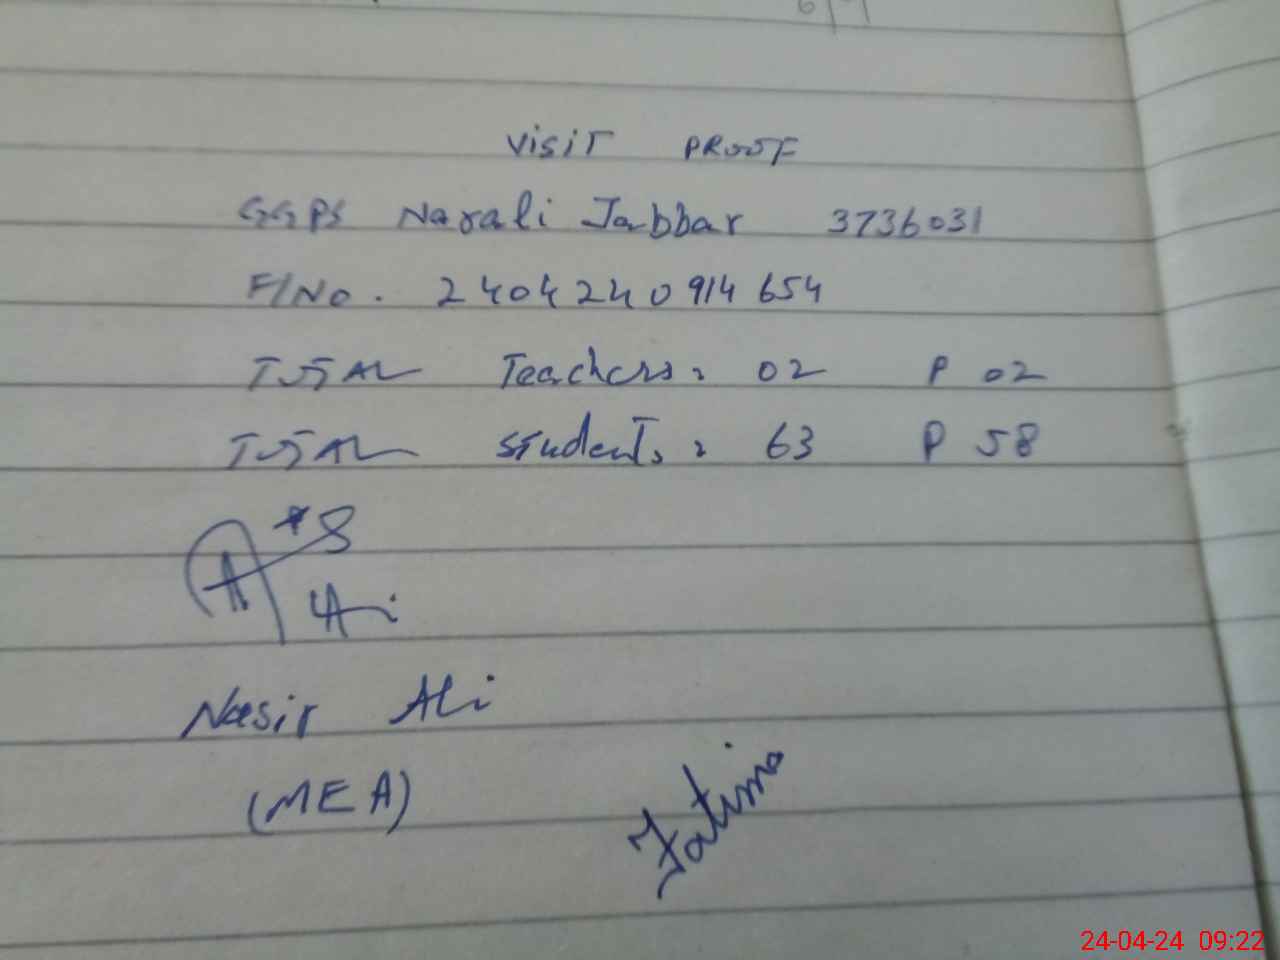 VISIT PROOF
GGPS Narali Jabbar 3736031
F/No. 2404240914654
TOTAL Teachers: 02 P 02
TOTAL Students: 63 P 58
Nasir Ali
(MEA)
Fatima
24-04-24 09:22